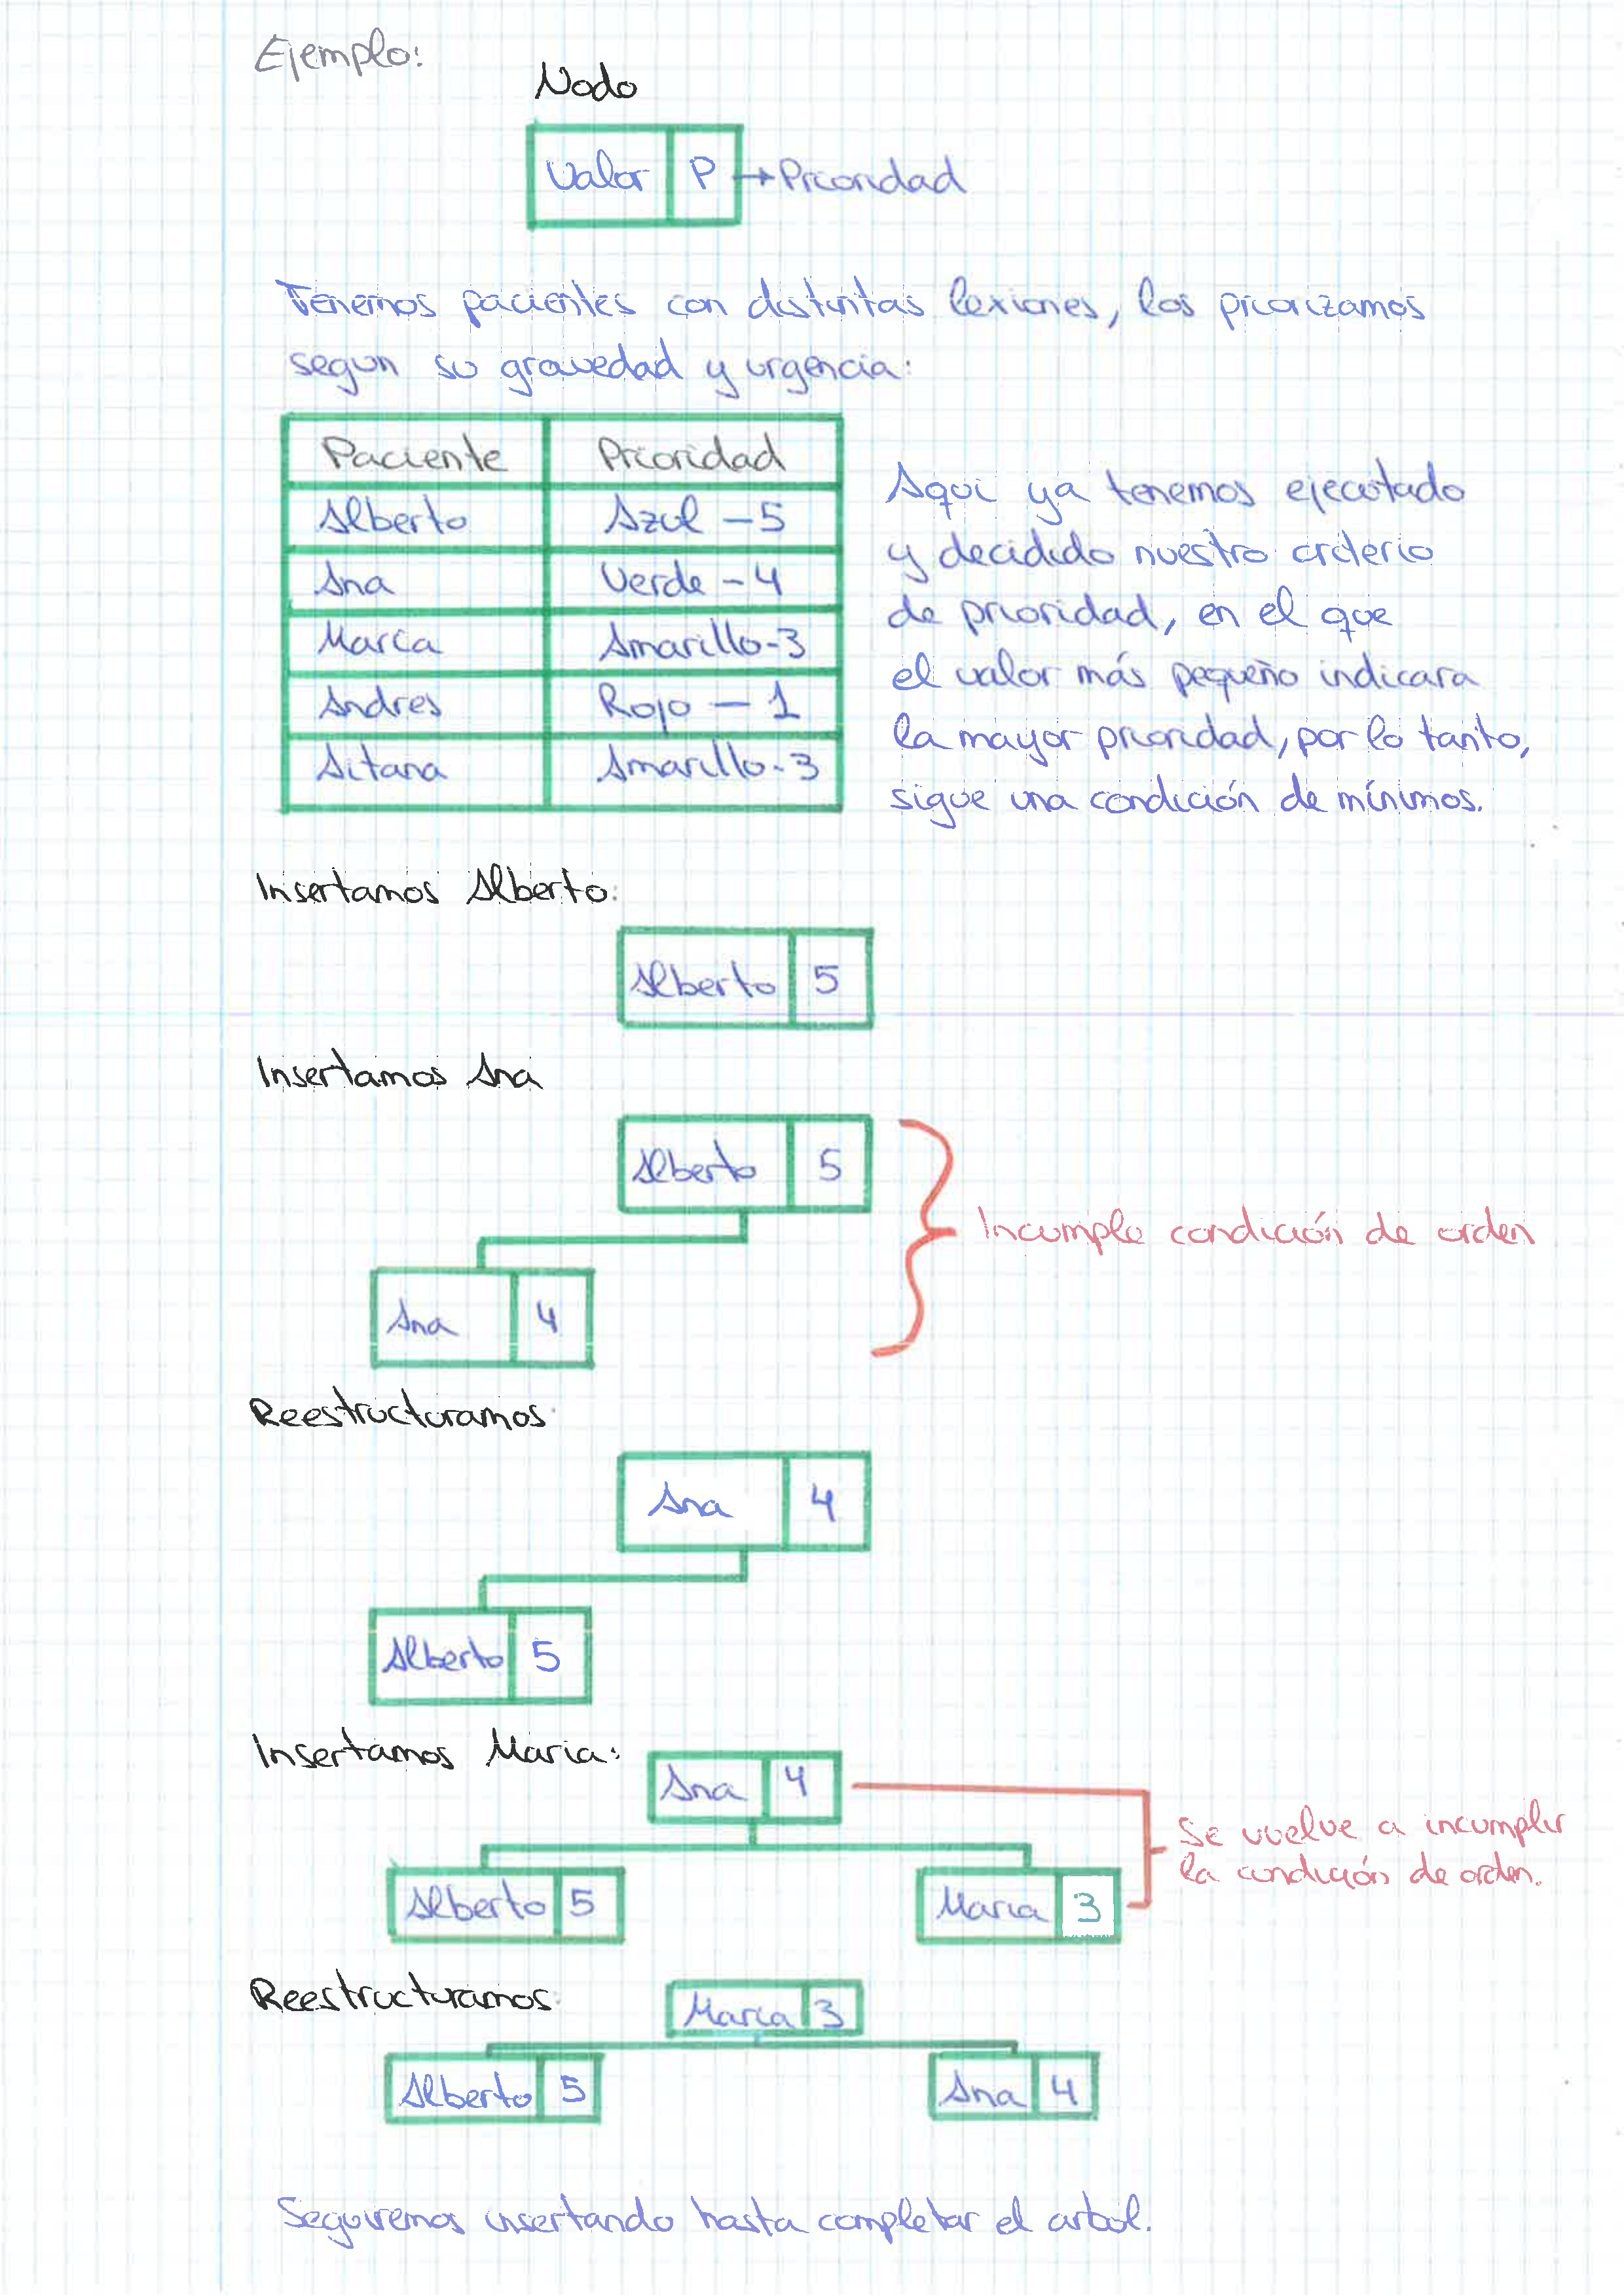 Ejemplo:
Nodo
Valor P → Prioridad
Tenemos pacientes con distintas lexiones, los priorizamos
segun su gravedad y urgencia:
Paciente Prioridad
Alberto Azul - 5
Ana Verde - 4
María Amarillo - 3
Andres Rojo - 1
Aitana Amarillo - 3
Aqui ya tenemos ejecutado
y decidido nuestro criterio
de prioridad, en el que
el valor más pequeño indicara
la mayor prioridad, por lo tanto,
sigue una condición de mínimos.
Insertamos Alberto:
Alberto 5
Insertamos Ana
Alberto 5
Incumple condición de orden
Ana 4
Reestructuramos:
Ana 4
Alberto 5
Insertamos Maria:
Ana 4
Se vuelve a incumplir
la condición de orden.
Alberto 5 Maria 3
Reestructuramos:
María 3
Alberto 5 Ana 4
Seguiremos insertando hasta completar el arbol.